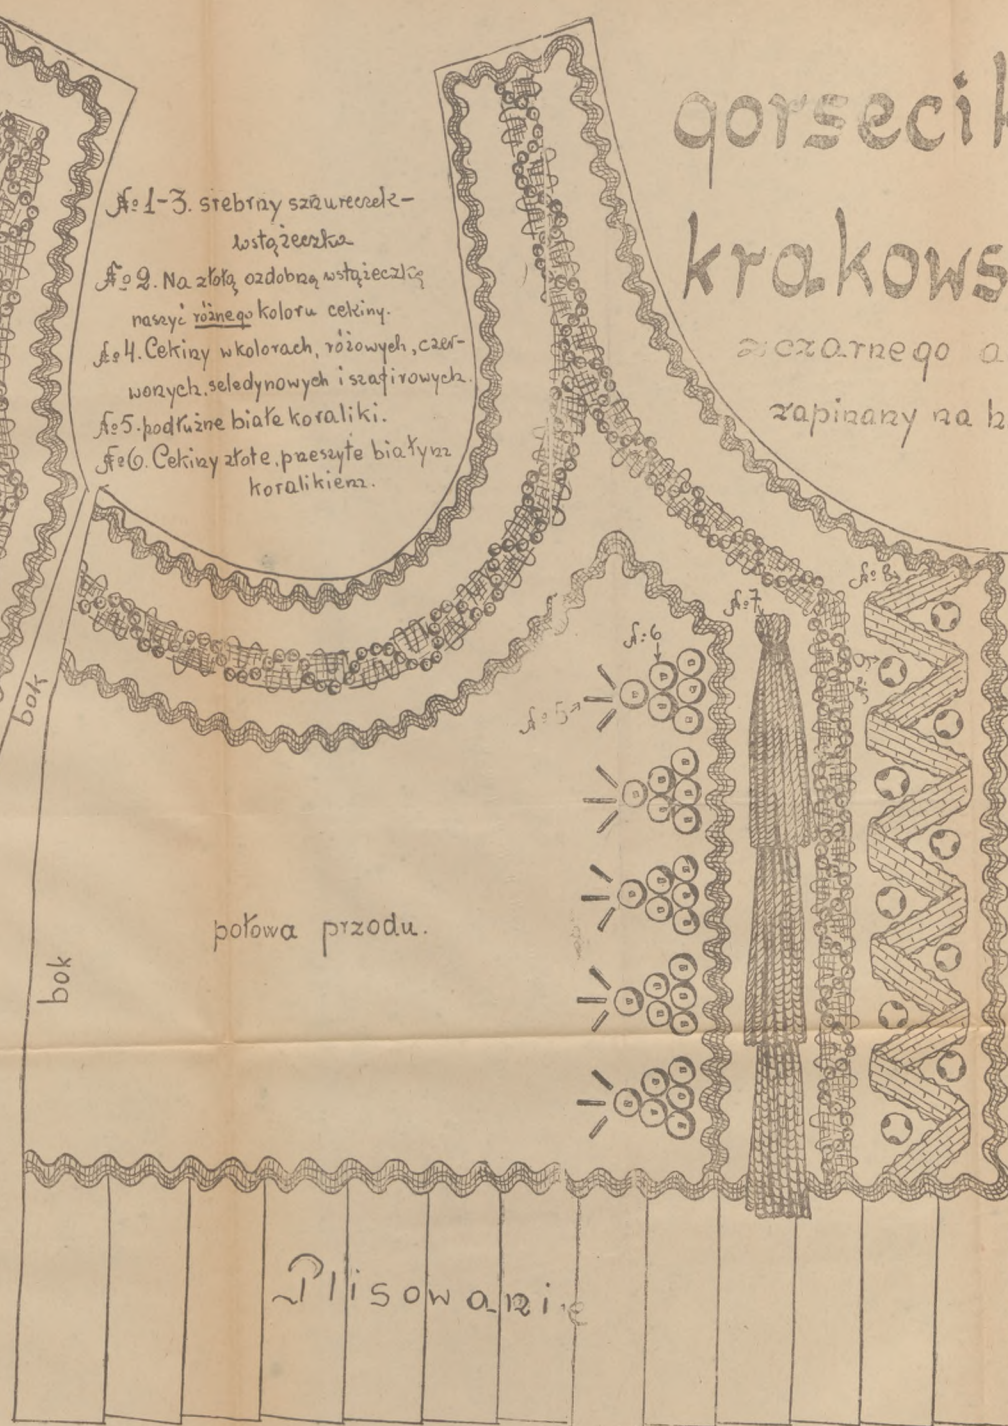 gorsecik
krakows
z czarnego a
zapinany na h
№ 1-3. srebrny sznureczek-
wstążeczka
№ 2. Na złotą ozdobną wstążeczkę
naszyć różnego koloru cekiny.
№ 4. Cekiny w kolorach, różowych, czer-
wonych, seledynowych i szafirowych.
№ 5. podłużne białe koraliki.
№ 6. Cekiny złote, przeszyte białym
koralikiem.
№ 8
№ 7
№ 6
№ 5
bok
połowa przodu.
bok
Plisowanie